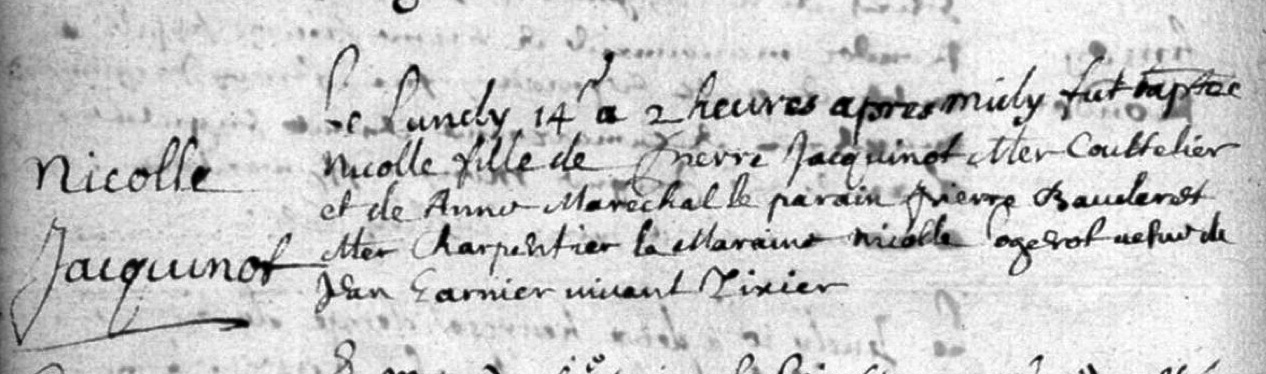 Nicolle
Jacquinot
Le Lundy 14e a 2 heures apres midy fut baptzee
Nicolle fille de Pierre Jacquinot Mter Couttelier
et de Anne Marechal le parain Pierre Bauderet
Mter Charpentier la Maraine Nicolle ogerot vefve de
Jean Garnier vivant Tixier